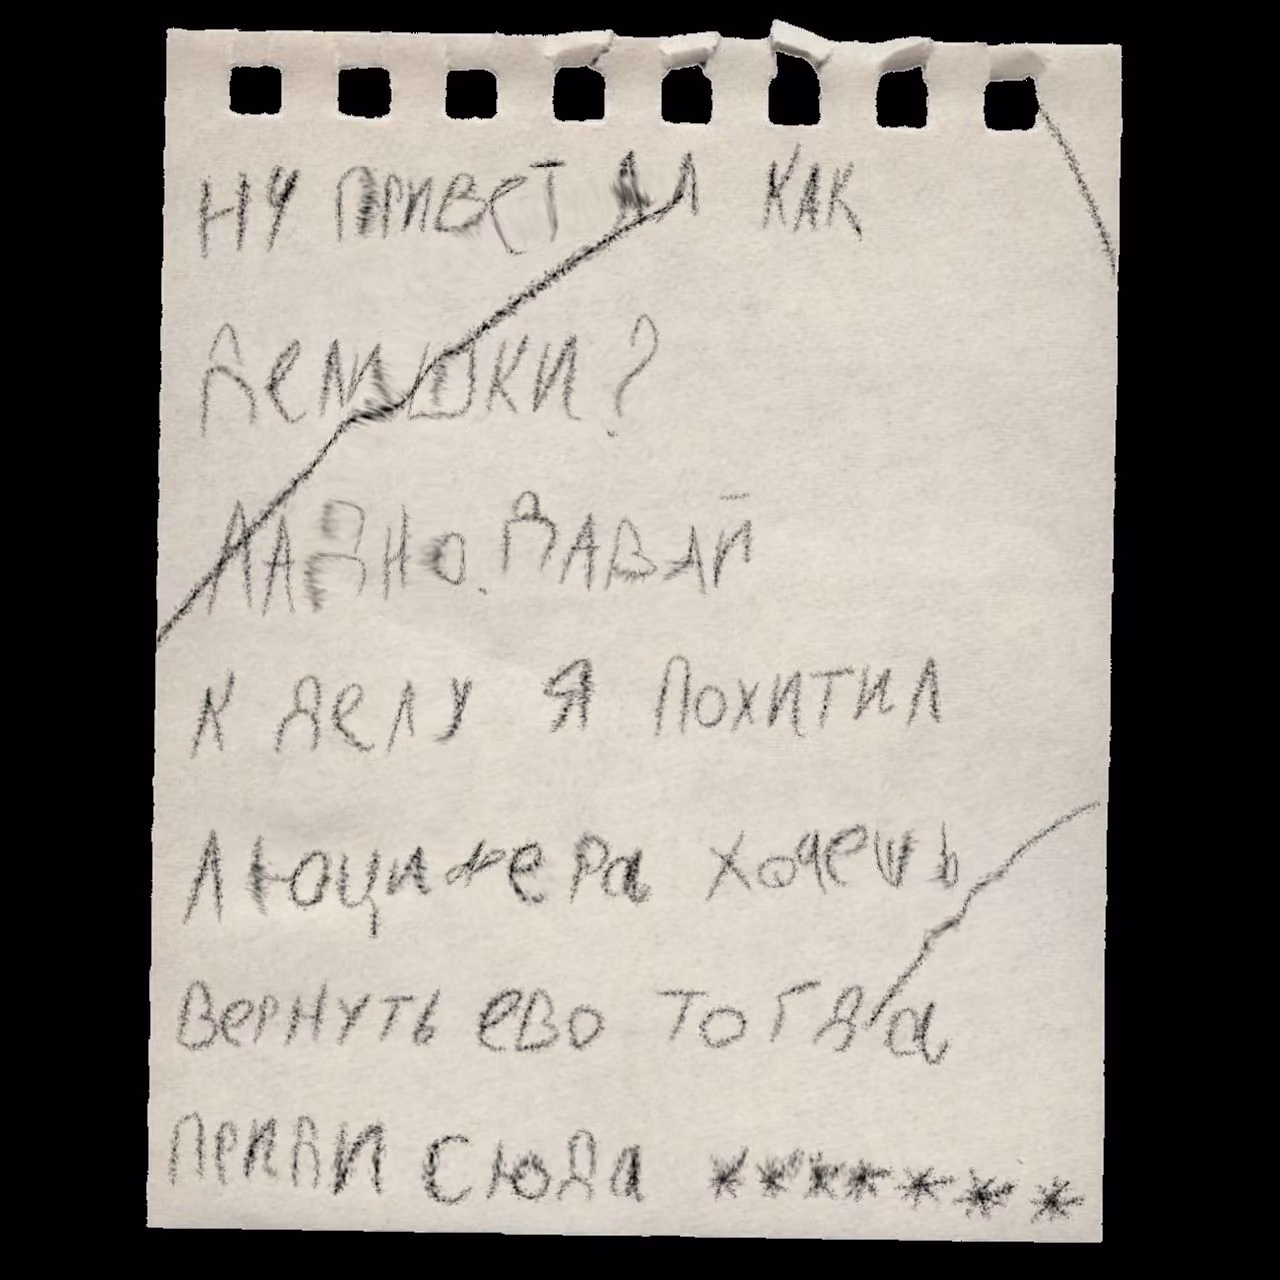 НУ ПРИВЕТ АЛ КАК
ДЕЛИШКИ?
ЛАДНО. ДАВАЙ
К ДЕЛУ Я ПОХИТИЛ
ЛЮЦИФЕРа ХОЧЕШЬ
ВЕРНУТЬ ЕВО ТОГДа
ПРИДИ СЮДа *******